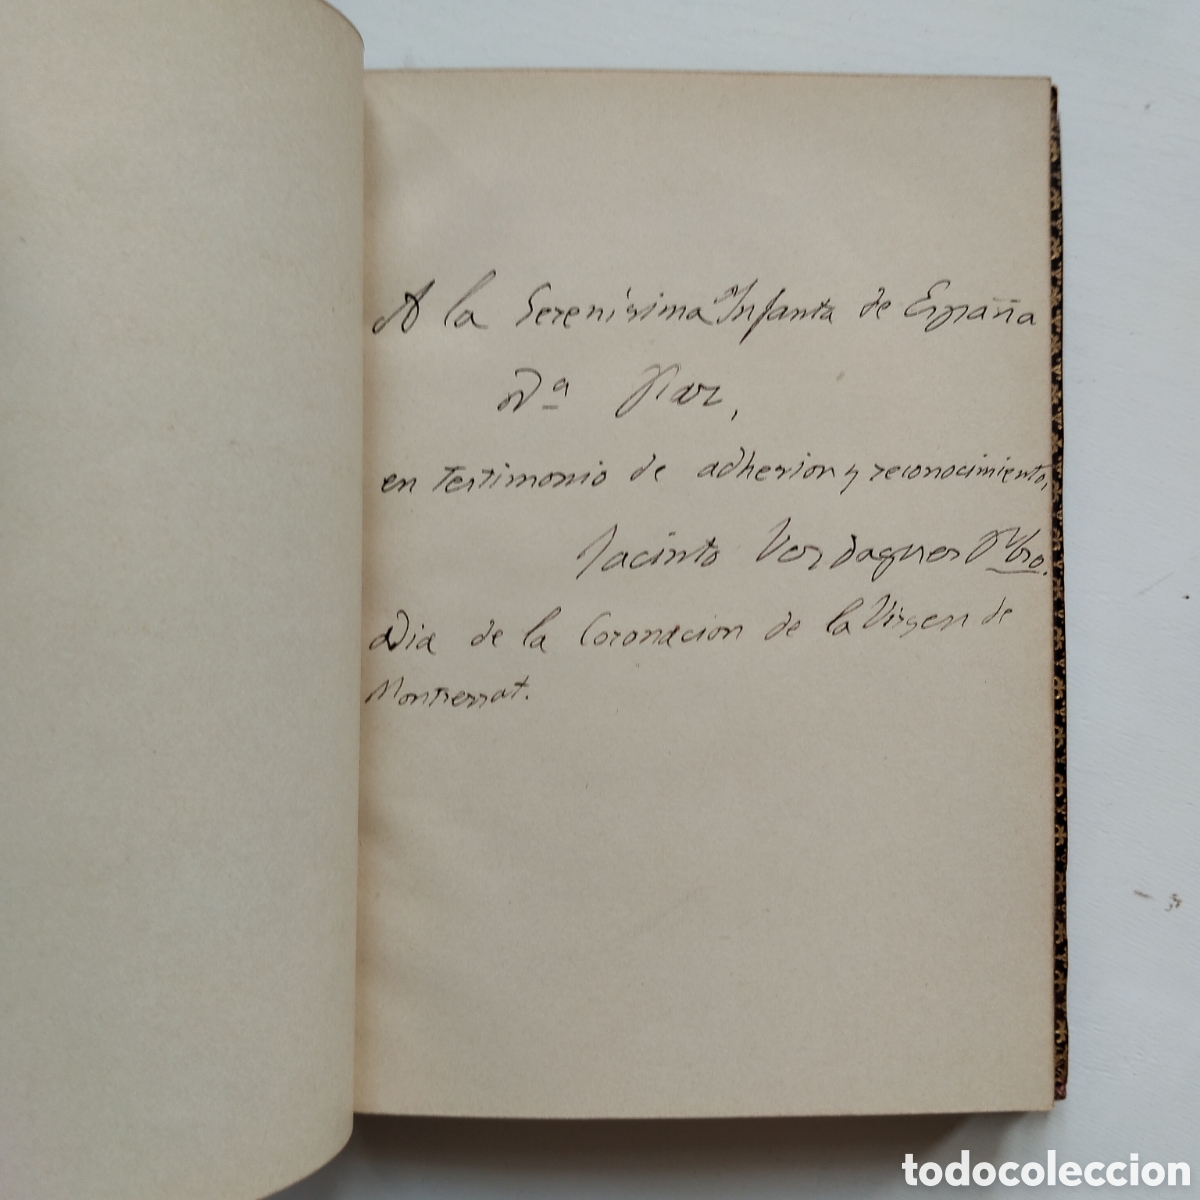 A la Serenisima Infanta de España
Dª Paz,
en testimonio de adhesion y reconocimiento,
Jacinto Verdaguer Pbro.
Dia de la Coronacion de la Virgen de
Montserrat.
todocoleccion